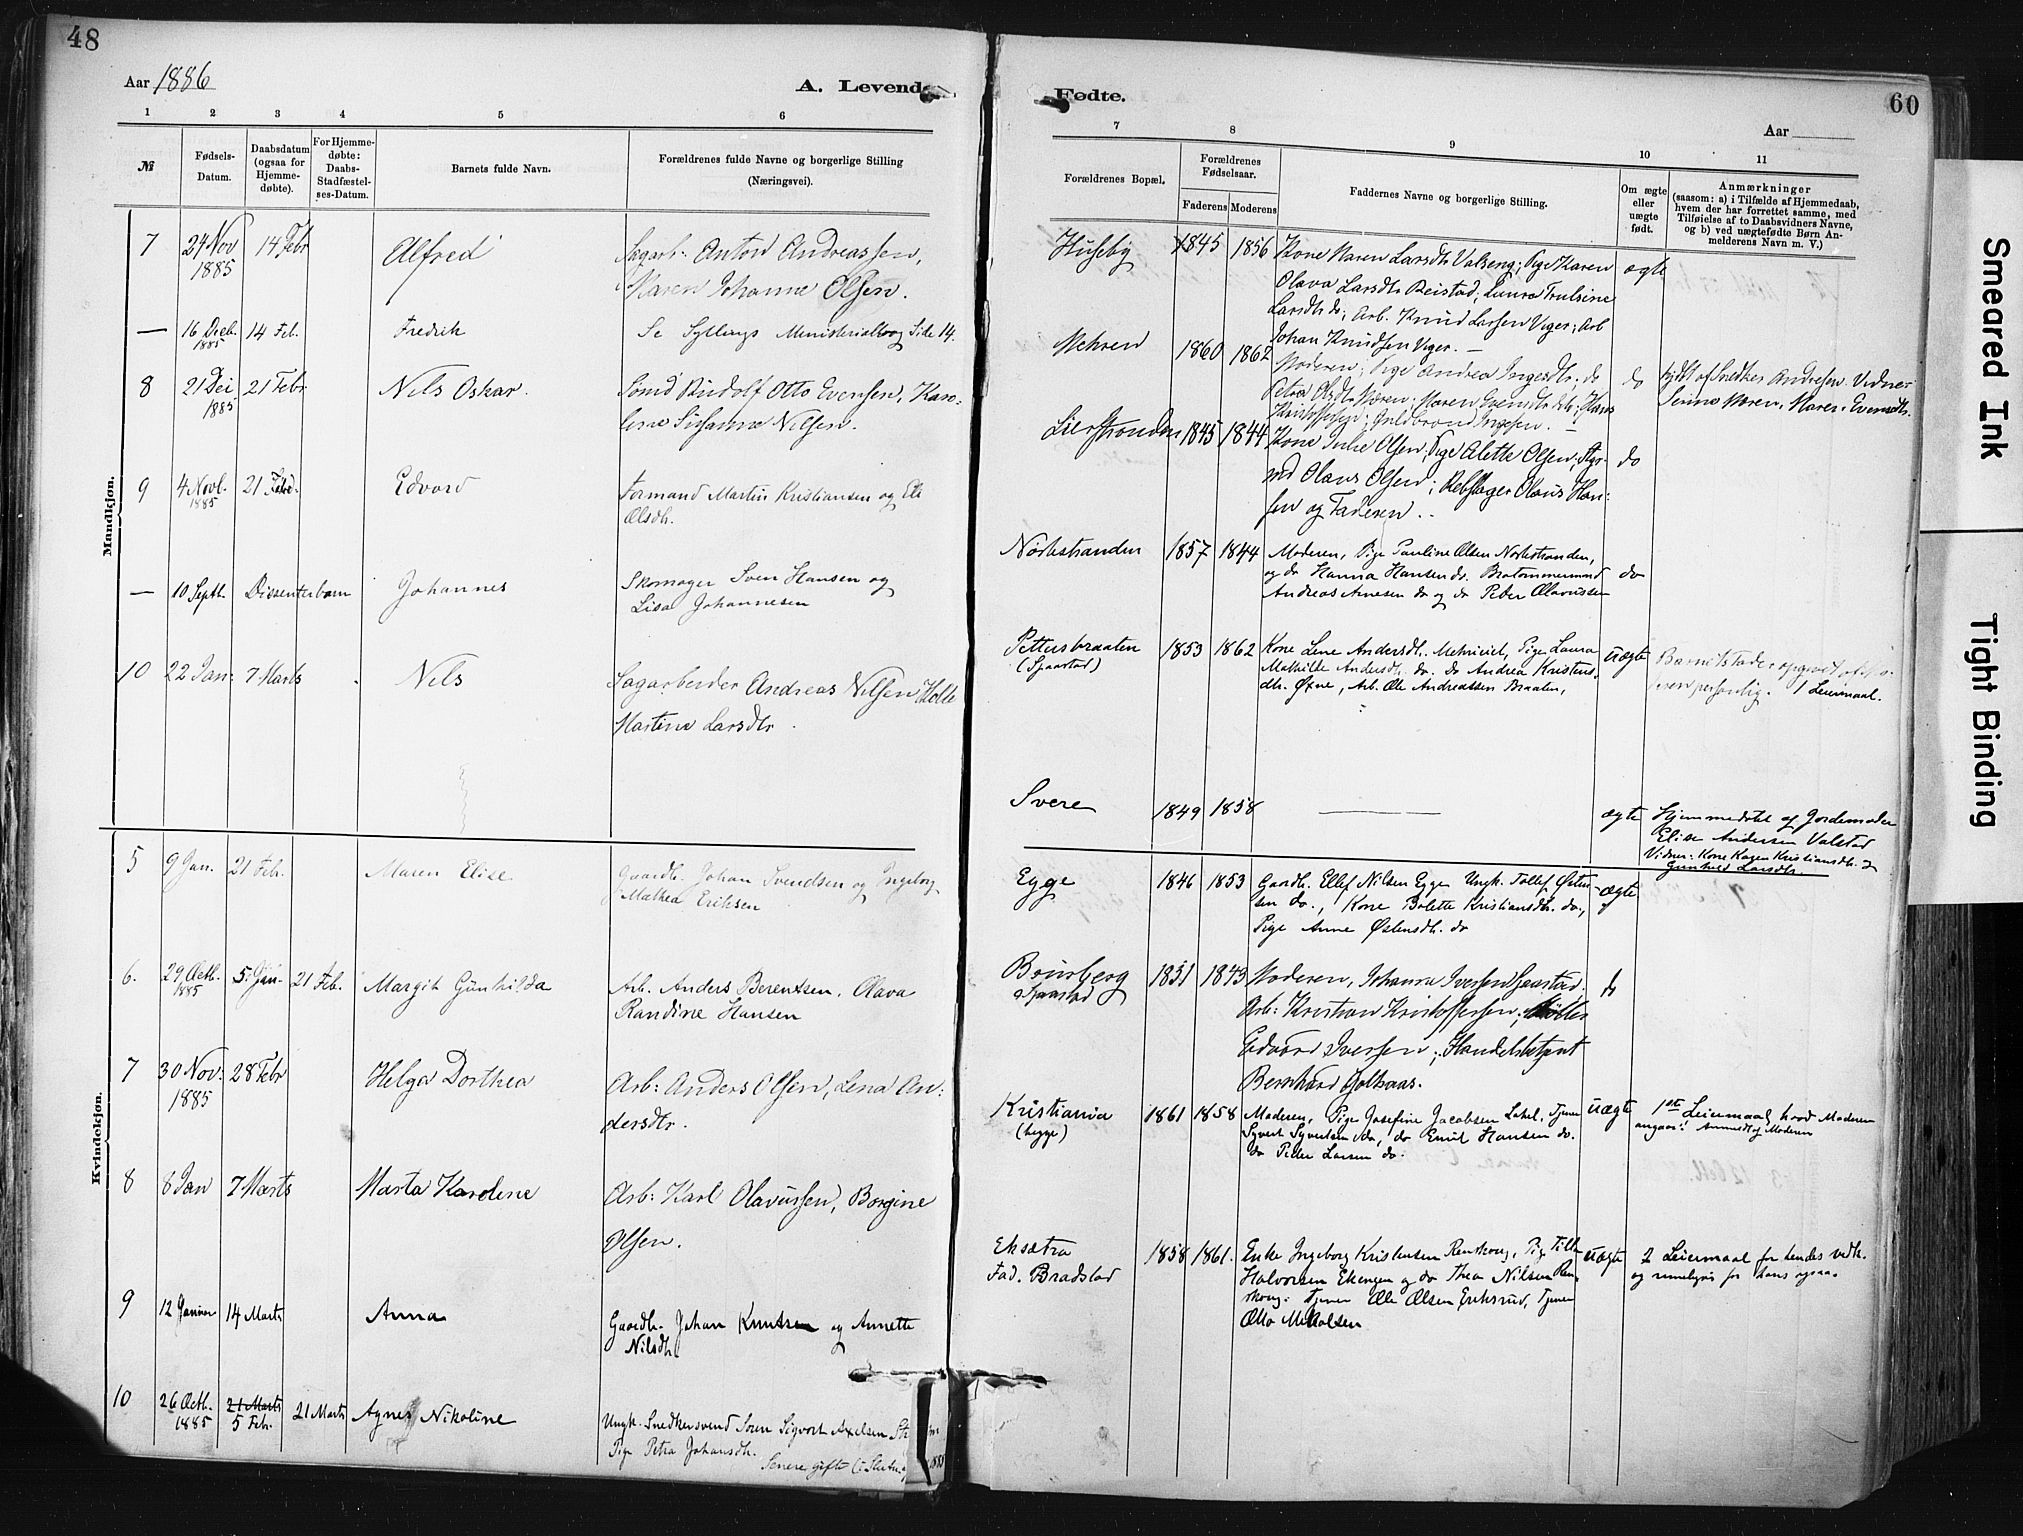 48
Aar 1886
A. Levend
1 2 3 4 5 6
№
Fødsels-Datum.
Daabsdatum (ogsaa for Hjemmedøbte).
For Hjemmedøbte: Daabs-Stadfæstelses-Datum.
Barnets fulde Navn.
Forældrenes fulde Navne og borgerlige Stilling
(Næringsvei).
Mandkjøn.
7 24 Nov 1885 14 Febr Alfred Sagarb: Anton Andreassen,
Maren Johanne Olsen.
— 16 Decb. 1885 14 Feb. Fredrik Se Syllings Ministerialbog Side 14.
8 21 Dei 1885 21 Febr Nils Oskar. Smed Rudolf Otto Evensen, Karo-
line Susanne Nilsen.
9 4 Novb. 1885 21 Febr. Edvard Formand Martin Kristiansen og Ele
Olsdtr.
— 10 Septb. Dissenterbarn Johannes Skomager Sven Hansen og
Lisa Johannesen
10 22 Jan: 7 Marts Nils Sagarbeider Andreas Nilsen Helle
Martine Larsdtr.
Kvindekjøn.
5 9 Jan. 21 Feb. Maren Elise Gaardb. Johan Svendsen og Ingeborg
Mathea Eriksen
6. 29 Octb. 1885 5. Jan. 21 Feb. Margit Gunhilda Arb. Anders Berentsen. Olava
Randine Hansen
7 30 Nov: 1885 28 Febr Helga Dorthea Arb: Anders Olsen, Lena An:
dersdtr.
8 8 Jan 7 Marts Marta Karoline Arb: Karl Olavussen, Borgine
Olsen.
9 12 Januar 14 Marts Anna Gaardb. Johan Knutsen og Annette
Nilsdtr.
10 26 Octb. 1885 21 Marts 5 Feb. 21 Marts Agnes Nikoline Ungk. Snedkersvend Søren Sigvart Axelsen
Pige Petra Johansdtr.
Senere gifte
Fødte.
60
7 8 9 10 11
Aar
Forældrenes Bopæl.
Forældrenes Fødselsaar.
Faderens Moderens
Faddernes Navne og borgerlige Stilling.
Om ægte eller uægte født.
Anmærkninger
(saasom: a) i Tilfælde af Hjemmedaab,
hvem der har forrettet samme, med
Tilføielse af to Daabsvidners Navne,
og b) ved uægtefødte Børn An-
melderens Navn m. V.)
Huseby 1845 1856 Kone Maren Larsdtr Valseng; Pige Karen ægte
Olava Larsdtr Reistad; Laura Trulsine
Larsdtr do; Arb. Knud Larsen Viger; Arb
Johan Knudsen Viger. —
Mehren 1860 1862 Moderen; Pige Andrea Ingesdtr. do do
Petra Olsdtr Mæren; Maren Evensdtr do; Hans
Kristoffersen; Guldbrand Ingesen. —
Lierstranden 1845 1844 Kone Julie Olsen; Pige Alette Olsen; Styr- do
md Olaus Olsen; Rebslager Olaus Han:
sen og Faderen.
Nørbstranden 1857 1844 Moderen, Pige Pauline Olsen Nørbstranden, do
og do Hanna Hansen do. Brotømmermand
Andreas Arnesen do og do Peder Olavussen
Pettersbraaten (Sjaastad) 1853 1862 Kone Lene Andersdtr. Mehrieiet, Pige Laura uægte
Mathilde Andersdtr. do. do Andrea Kristens
dtr. Øxne, Arb. Ole Andreassen Braaten,
1 Leiermaal.
Svere 1849 1858 ægte Hjemmedøbt af Jordemoder
Elise Andersen Valstad
Vidner: Kone Karen Kristiansdtr. og
Gunhild Larsdtr.
Egge 1846 1853 Gaardb. Ellef Nilsen Egge Ungk. Tollef Østen- ægte
sen do., Kone Bolette Kristiansdtr. do.,
Pige Anne Østensdtr. do
Bøinsberg Sjaastad 1851 1843 Moderen, Johanna Iversen Sjaastad. do
Arb: Kristian Kristoffersen; Møller
Edvard Iversen; Handelsbetjent
Bernhard Golhaas.
Kristiania (Legge) 1861 1858 Moderen, Pige Josefine Jacobsen Lahel. Tjener uægte 1ste Leiermaal, hvad Moderen
Syvert Syvertsen do, do Emil Hansen do. angaar. Anmeldt af Moderen
do Peder Larsen do.
Eksætra 1858 1861. Enke Ingeborg Kristensen Renskoug, Pige Tilla uægte 2 Leiermaal for hendes vedk.
Fad. Bradstad Halvorsen Ekengen og do Thea Nilsen Ren og rimeligvis for hans ogsaa.
skoug. Tjener Ole Olsen Eriksrud, Tjener
Otto Mikkelsen
Smeared Ink
Tight Binding